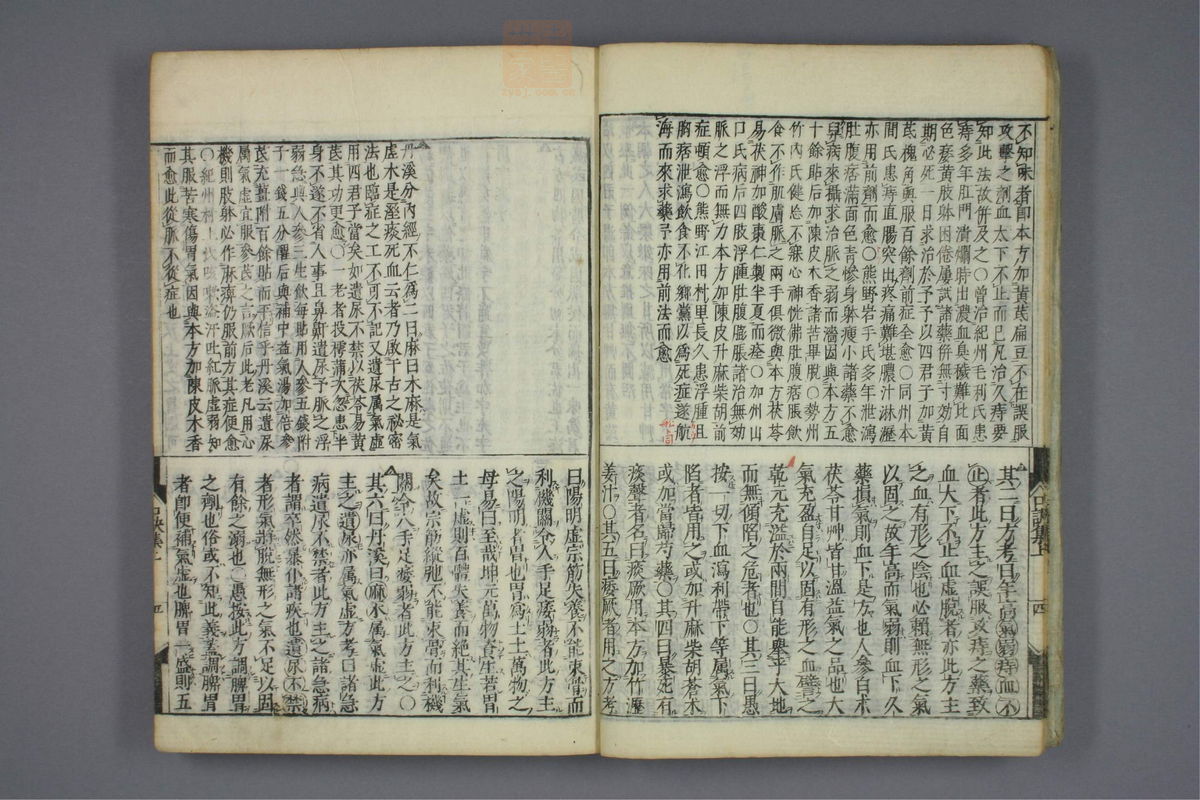 不知味者即本方加黃芪扁豆不在誤服
攻擊之劑血太下不止而已凡治久痔要
知此法故併及之〇曾治紀州毛利氏患
痔多年肛門潰爛時出濃血臭穢難比面
色痿黃肢躰困倦屢試諸藥併無寸効自
期必死一日求治於予予以四君子加黃
芪槐角與服百餘劑前症全愈〇同州本
間氏患痔直腸突出疼痛難堪膿汁淋瀝
亦用前劑而愈〇熊野岩手氏多年泄瀉
肚腹痞滿面色青慘身躰瘦小諸藥不愈
與病來攝求治脈之弱而濇因與本方五
十餘貼后加陳皮木香諸苦畢脫〇勢州
竹內氏健忘不寐心神恍佛肚腹痞脹飲
食不作肌膚脈之兩手俱微與本方茯苓
易茯神加酸棗仁製半夏而痊〇加州山
口氏病后四肢浮腫肚腹膨脹諸治無効
脈之浮而無力本方加陳皮升麻柴胡前
症頓愈〇熊野江田村里長久患浮腫且
胸痞泄瀉飲食不化鄉黨以爲死症遂航
海而來求藥予亦用前法而愈
其二曰方考曰年高氣弱痔血不
止者此方主之誤服攻痔之藥致
血大下不止血虛脫者亦此方主
之血有形之陰也必賴無形之氣
以固之故年高而氣弱則血下久
藥損氣則血下是方也人參白朮
茯苓甘艸皆甘溫益氣之品也大
氣充盈自足以固有形之血譬之
乾元充溢於兩間自能舉乎大地
而無傾陷之危者也〇其三曰愚
按一切下血瀉利帶下等属氣下
陷者皆用之或加升麻柴胡蒼朮
或加當歸芍藥〇其四曰暴死有
痰聲者名曰痰厥用本方加竹瀝
姜汁〇其五曰痿厥者用之方考
丹溪分內經不仁爲二曰麻曰木麻是氣
虛木是溼痰死血云者乃啟千古之祕密
法也臨症之工不可不記又遺尿属氣虛
用四君子當矣如遺尿不禁以茯苓易黃
芪其功更愈〇一老者投樗蒲大忽患半
身不遂不省人事且鼻鼾遺尿予脈之浮
弱急與人參三生飲每貼用人參五錢附
子一錢五分醒后與補中益氣湯加倍參
芪充薑附百餘貼而平信乎丹溪云遺尿
属氣虛宜服參芪之言厥后此老凡用心
機則肢躰必作麻痹仍服前方其症便愈
〇紀州村上氏咳嗽盜汗吐紅脈虛弱知
其服苦寒傷胃氣因與本方加陳皮木香
而愈此從脈不從症也
曰陽明虛宗筋失養不能束骨而
利機關令人手足痿弱者此方主
之陽明者胃也胃爲土土萬物之
母易曰至哉坤元萬物資生若胃
土一虛則百體失養而絕其生氣
矣故宗筋縱弛不能束骨而利機
關令人手足痿弱者此方主之〇
其六曰丹溪曰麻木属氣虛此方
主之遺尿亦属氣虛方考曰諸急
病遺尿不禁者此方主之諸急病
者謂卒然暴仆諸疾也遺尿不禁
者形氣將脫無形之氣不足以固
有餘之溺也〇愚按此方調脾胃
之劑也俗或不知此義蓋調脾胃
者即便補氣虛也脾胃一盛則五